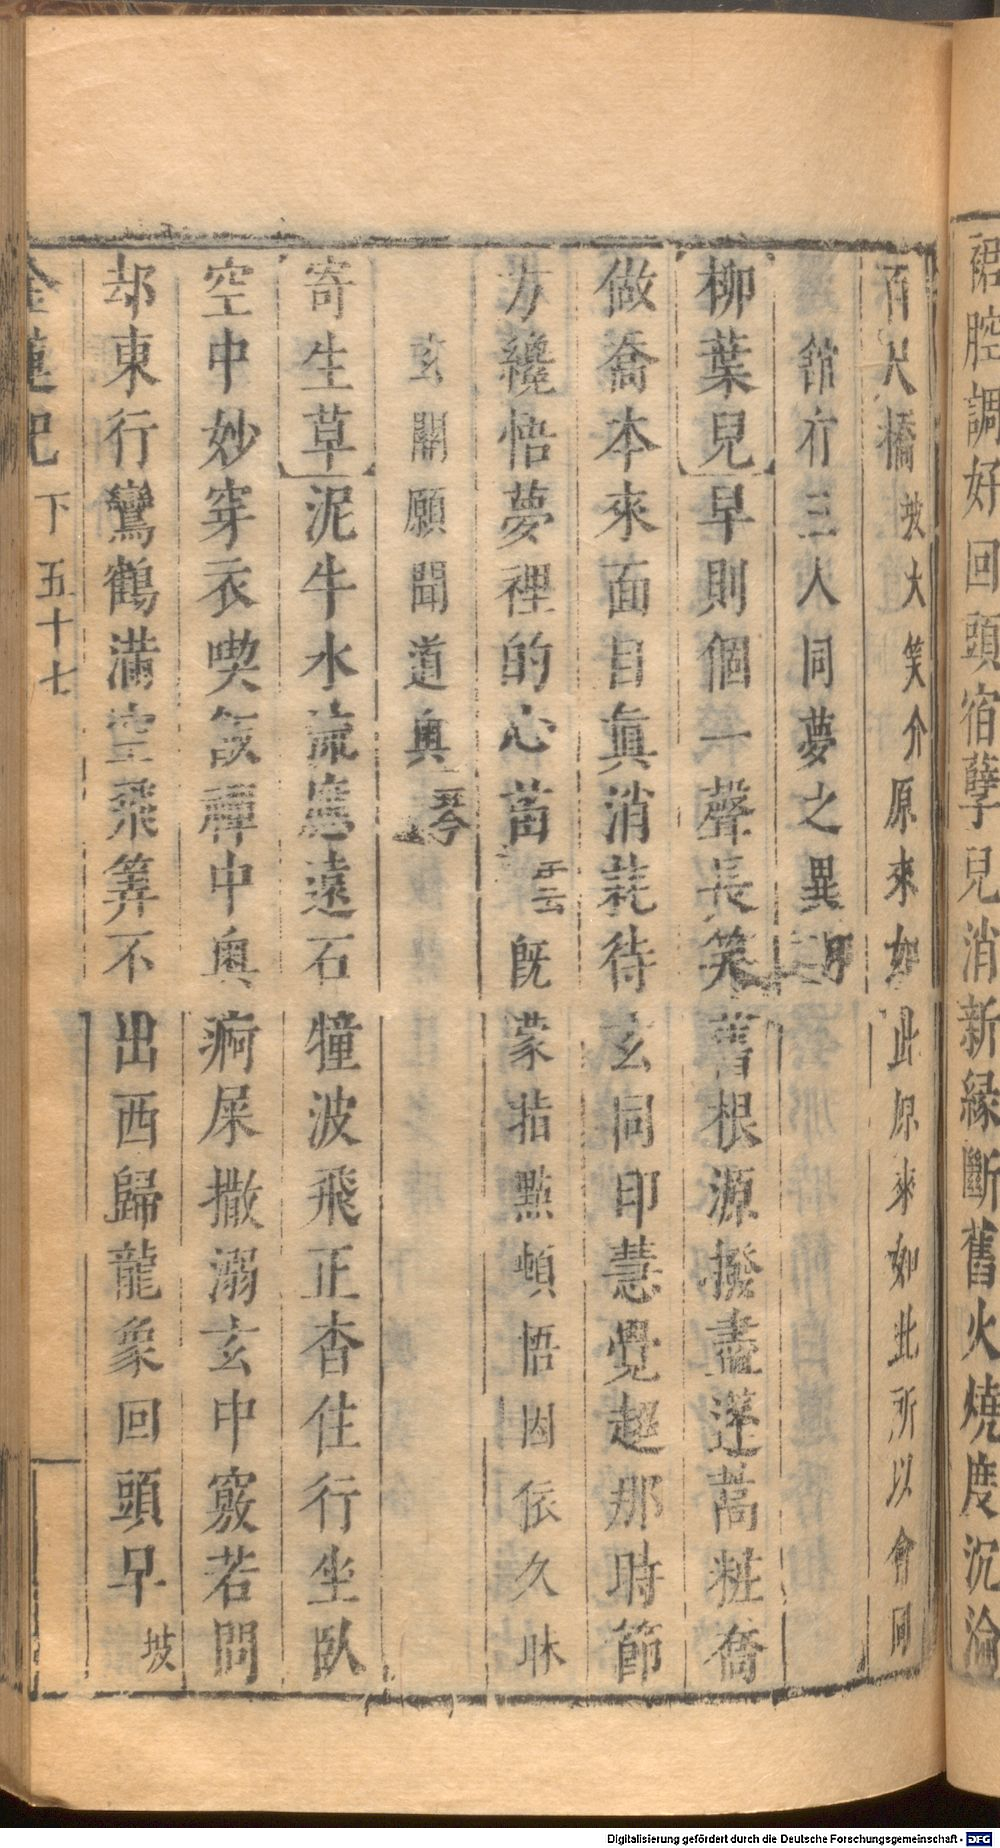 裙腔調好回頭宿孽兒消新緣斷舊火燒度沉淪
百尺橋坡大笑介原來如此原來如此所以會同
館有三人同夢之異
柳葉兒早則個一聲長笑舊根源撥盡蓬蒿粧喬
做喬本來面目眞消耗待玄同印慧覺超那時節
方纔悟夢裡的心苗雲旣蒙指點頓悟因依久昧
玄關願聞道奥琴
寄生草泥牛水流應遠石犝波飛正杳住行坐臥
空中妙穿衣喫飯禪中奥痾屎撒溺玄中竅若問
却東行鸞鶴滿空飛筭不出西歸龍象回頭早坡
金蓮記 下 五十七
Digitalisierung gefördert durch die Deutsche Forschungsgemeinschaft - DFG